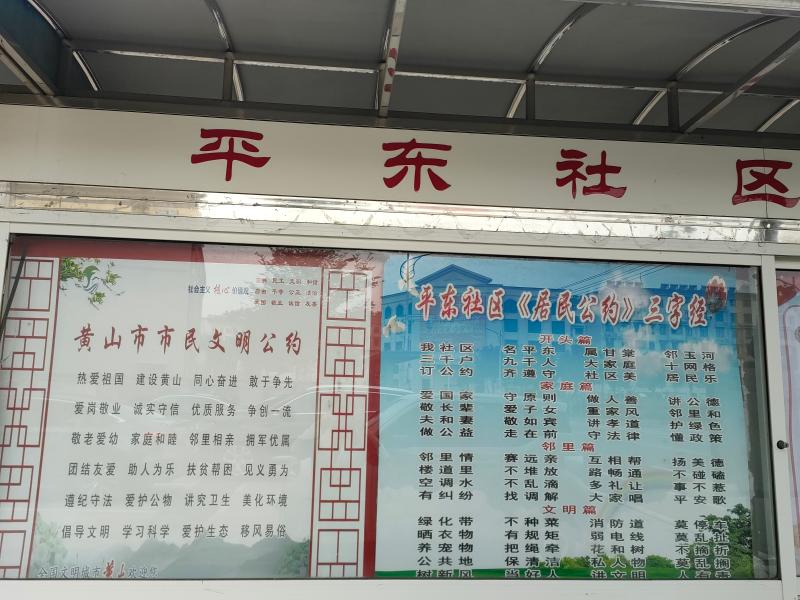 平东社区
社会主义核心价值观
富强 民主 文明 和谐
自由 平等 公正 法治
爱国 敬业 诚信 友善
黄山市市民文明公约
热爱祖国 建设黄山 同心奋进 敢于争先
爱岗敬业 诚实守信 优质服务 争创一流
敬老爱幼 家庭和睦 邻里相亲 拥军优属
团结友爱 助人为乐 扶贫帮困 见义勇为
遵纪守法 爱护公物 讲究卫生 美化环境
倡导文明 学习科学 爱护生态 移风易俗
全国文明城市黄山欢迎您
平东社区《居民公约》三字经
开头篇
我社区 名平东 属甘棠 邻玉河
三千户 九千人 大家庭 十网格
订公约 齐遵守 社区美 居民乐
家庭篇
爱国家 守原则 做人善 讲公德
敬长辈 爱子女 重家风 邻里和
夫和妻 敬如宾 讲孝道 护绿色
做公益 走在前 守法律 懂政策
邻里篇
邻里情 赛远亲 互相帮 扬美德
楼道里 不堆放 路畅通 不碰磕
空调水 不乱滴 多礼让 事不惹
有纠纷 找调解 大家唱 平安歌
文明篇
绿化带 不种菜 消防道 莫停车
晒衣物 有规矩 弱电线 莫乱扯
养宠物 把绳牵 花和树 不摘折
公共地 保清洁 私人物 莫乱搁
树新风 当好人 讲文明